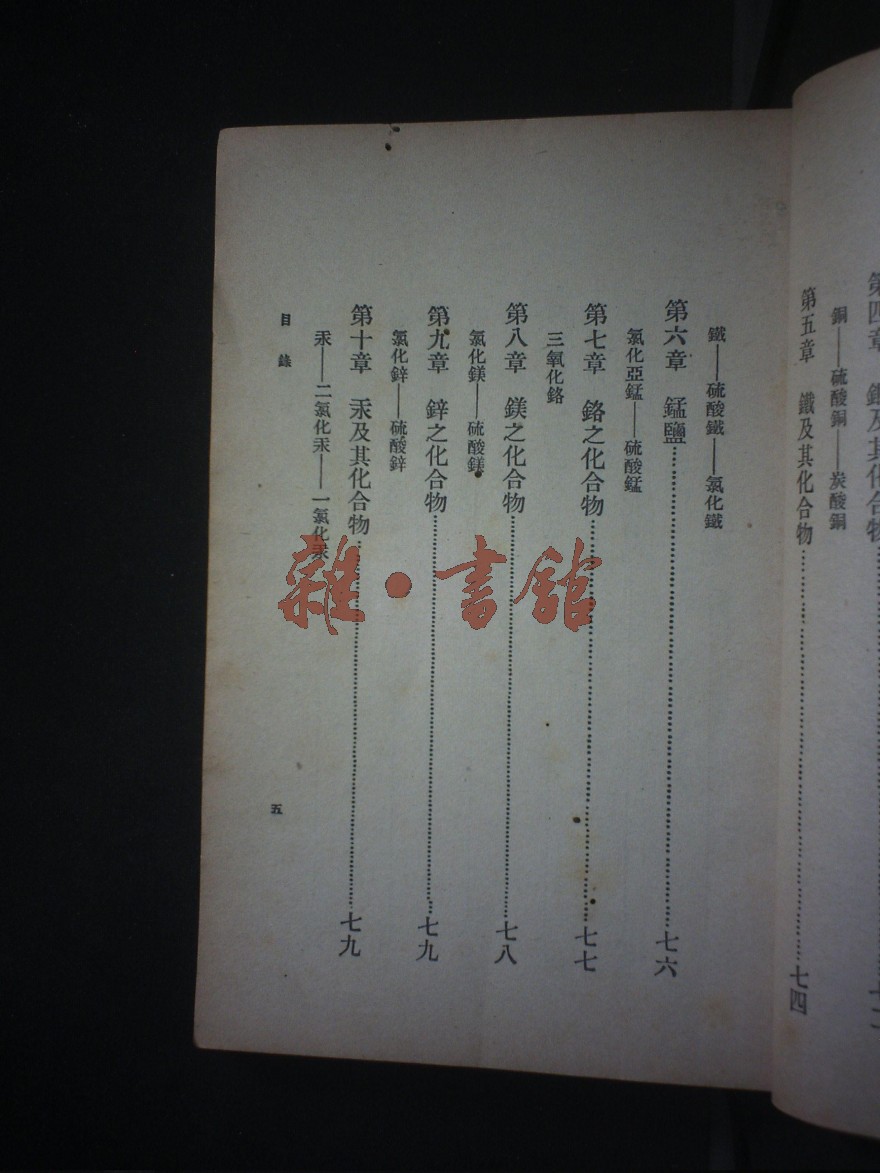 第四章　鐵及其化合物
銅——硫酸銅——炭酸銅
第五章　鐵及其化合物……七四
鐵——硫酸鐵——氯化鐵
第六章　錳鹽……七六
氯化亞錳——硫酸錳
第七章　鉻之化合物……七七
三氧化鉻
第八章　鎂之化合物……七八
氯化鎂——硫酸鎂
第九章　鋅之化合物……七九
氯化鋅——硫酸鋅
第十章　汞及其化合物……七九
汞——二氯化汞——一氯化汞
目錄
五
雜·書館